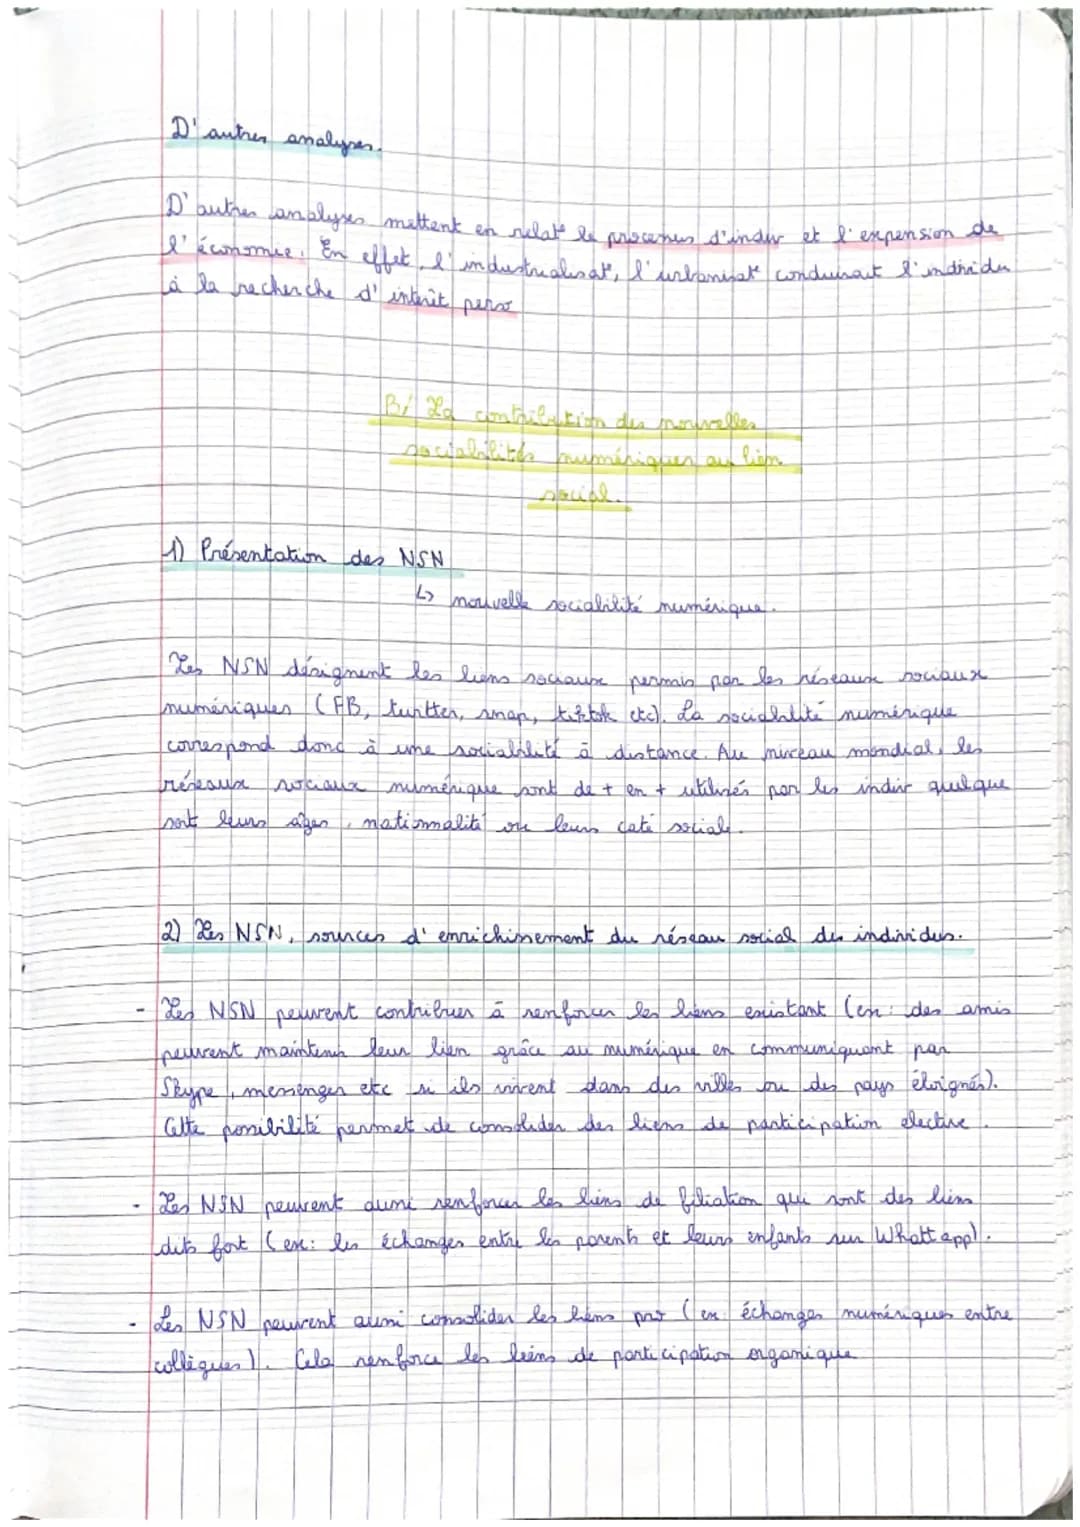 D'autres analyses.
D'autres analyses mettent en relat° le processus d'indiv et l'expension de
l'économie. En effet, l'industrialisat°, l'urbanisat° conduirait l'individu
à la recherche d'intérêt perso
B/ La contribution des nouvelles
sociabilités numériques au lien
social.
1) Présentation des NSN
↳ nouvelle sociabilité numérique.
Les NSN désignent les liens sociaux permis par les réseaux sociaux
numériques (FB, twitter, snap, tiktok etc). La sociabilité numérique
correspond donc à une sociabilité à distance. Au niveau mondial, les
réseaux sociaux numérique sont de + en + utilisés par les indiv quelque
sont leurs âges, nationnalité ou leurs caté sociale.
2) Les NSN, sources d'enrichissement du réseau social des individus.
- Les NSN peuvent contribuer à renforcer les liens existant (ex: des amis
peuvent maintenir leur lien grâce au numérique en communiquant par
Skype, messenger etc si ils vivent dans des villes ou des pays éloignés).
Cette possibilité permet de consolider des liens de participation élective.
- Les NSN peuvent aussi renforcer les liens de filiation qui sont des liens
dits fort (ex: les échanges entre les parents et leurs enfants sur Whatt app).
- Les NSN peuvent aussi consolider les liens pro (ex: échanges numériques entre
collègues). Cela renforce les liens de participation organique